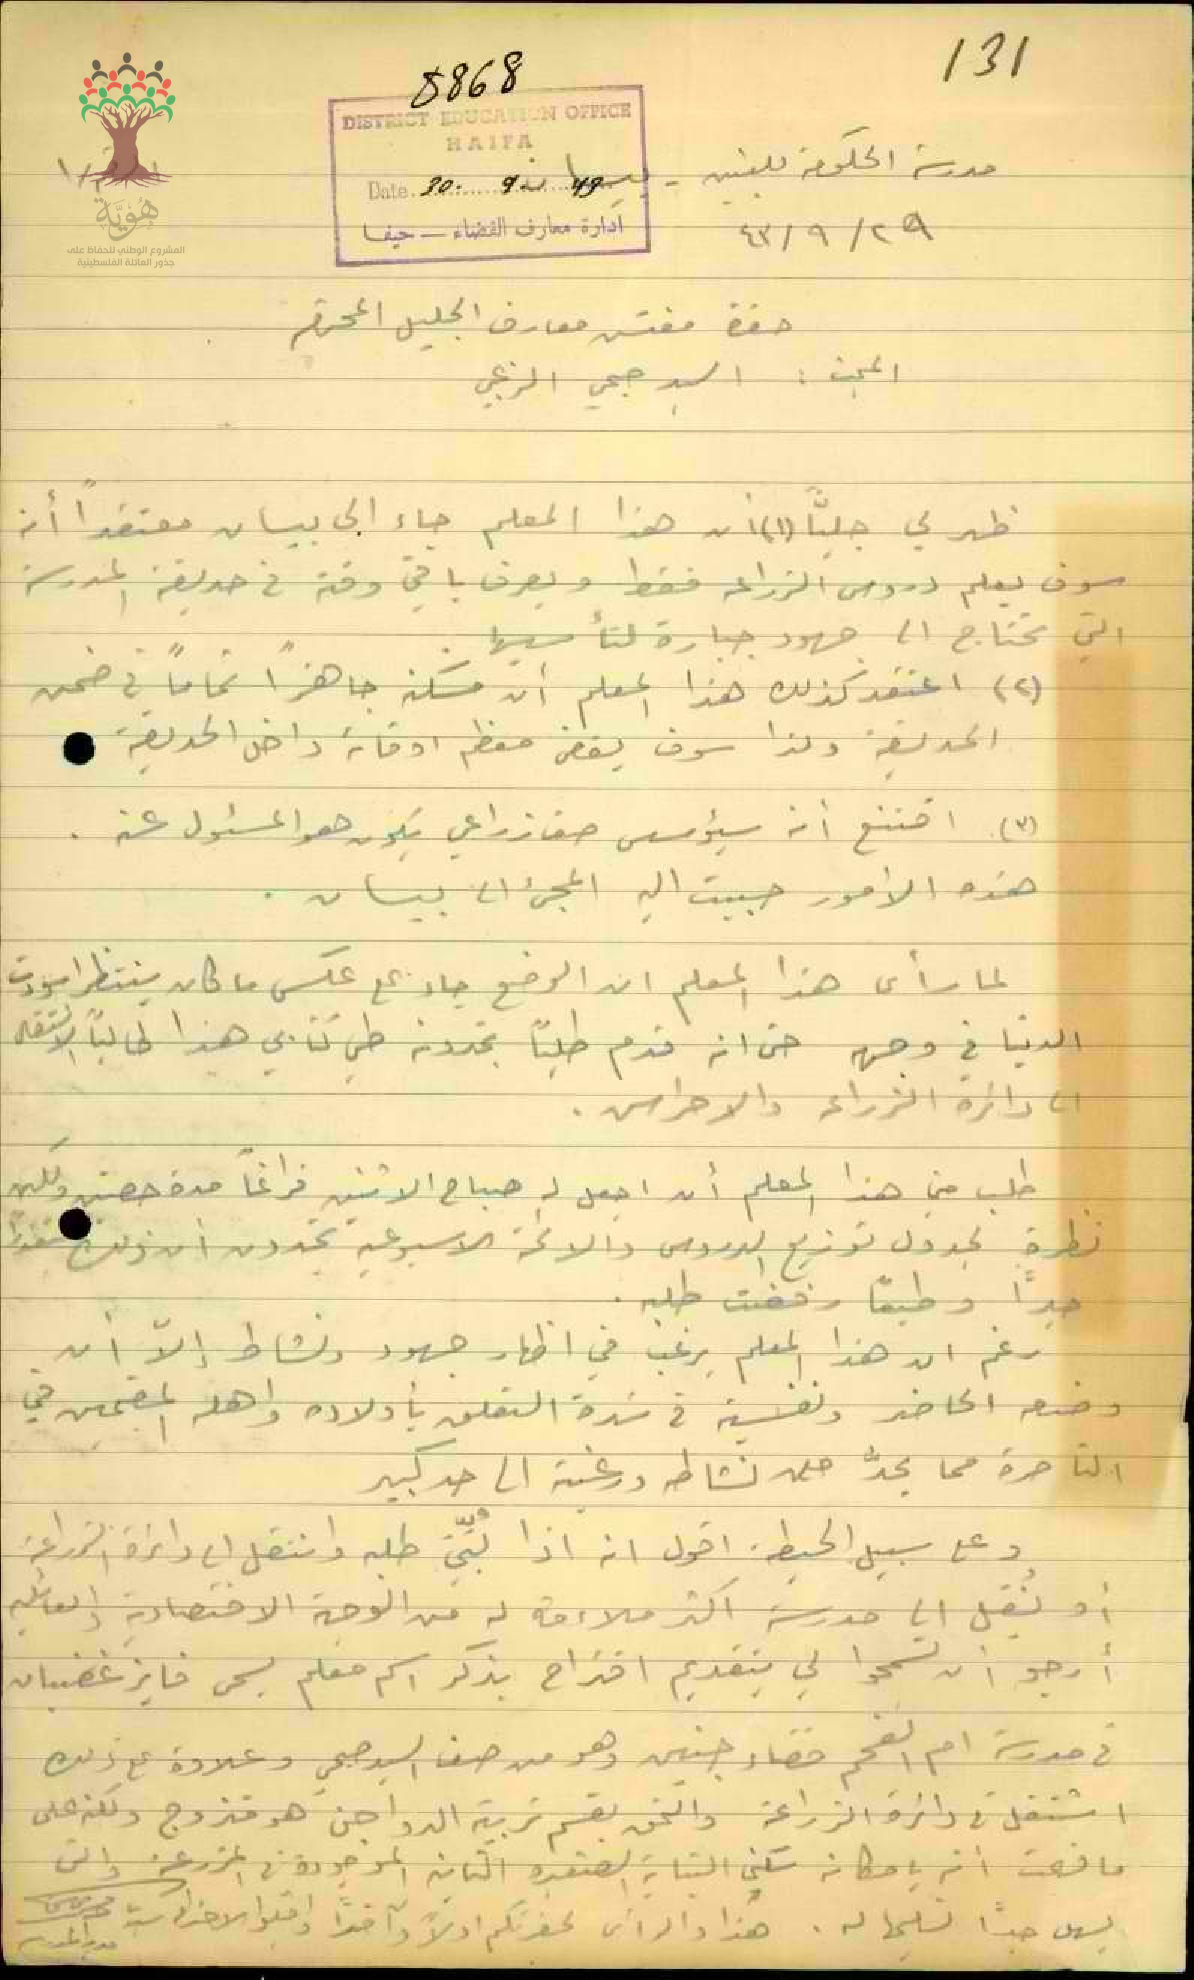 131
5868
DISTRICT EDUCATION OFFICE
HAIFA
Date. 30. 9. 43
ادارة معارف القضاء – حيفا
هُوِيَّة
المشروع الوطني للحفاظ على
جذور العائلة الفلسطينية
مدرسة الحكومة للبنين - بيسان
٢٩ / ٩ / ٤٣
حضرة مفتش معارف الجليل المحترم
المبحث : السيد صبحي الزعبي
ظهر لي جليّاً (١) أن هذا المعلم جاء الى بيسان معتقداً أنه
سوف يعلم دروس الزراعة فقط ويصرف باقي وقته في حديقة المدرسة
التي تحتاج الى جهود جبارة لتأسيسها .
(٢) اعتقد كذلك هذا المعلم أن مسكنه جاهزاً تماماً في ضمن
الحديقة ولذا سوف يقضي معظم اوقاته داخل الحديقة
(٣) اقتنع أنه سيؤسس صف زراعي يكون هو المسئول عنه .
هذه الأمور حببت اليه المجئ الى بيسان .
لما رأى هذا المعلم ان الوضع جاء على عكس ما كان ينتظر اسودت
الدنيا في وجهه حتى انه قدم طلباً تجدونه طي كتابي هذا طالباً الانتقال
الى دائرة الزراعة والاحراس .
طلب مني هذا المعلم أن اجعل له صباح الاثنين فراغاً مدة حصتين ولكن
نظرة لجدول توزيع الدروس واللائحة الاسبوعية تجدون أن ذلك
جداً وطبعاً رفضت طلبه .
رغم ان هذا المعلم يرغب في اظهار جهود ونشاط إلاّ أن
وضعه الحاضر ونفسيته في شدة التعلق بأولاده واهله المقيمين في
الناصرة مما يحدّ من نشاطه ورغبته الى حد كبير
وعلى سبيل الحيطة اقول انه اذا لُبّي طلبه وانتقل الى دائرة الزراعة
أو نُقل الى مدرسة اكثر ملاءمة له من الوجهة الاقتصادية والعائلية
أرجو أن تسمحوا لي بتقديم اقتراح بذكر اسم معلم يسمى فايز غضبان
في مدرسة ام الفحم قضاء جنين وهو من صف السيد صبحي وعلاوة على ذلك
اشتغل في دائرة الزراعة والتحق بقسم تربية الدواجن هو متزوج ولكنه على
ما فهمت أنه بامكانه سكنى البناية الصغيرة الموجودة في المزرعة والتي
يسهل جداً تسليمها له . هذا والرأي لحضرتكم اولاً وآخراً واقبلوا الاحترام
مدير المدرسة